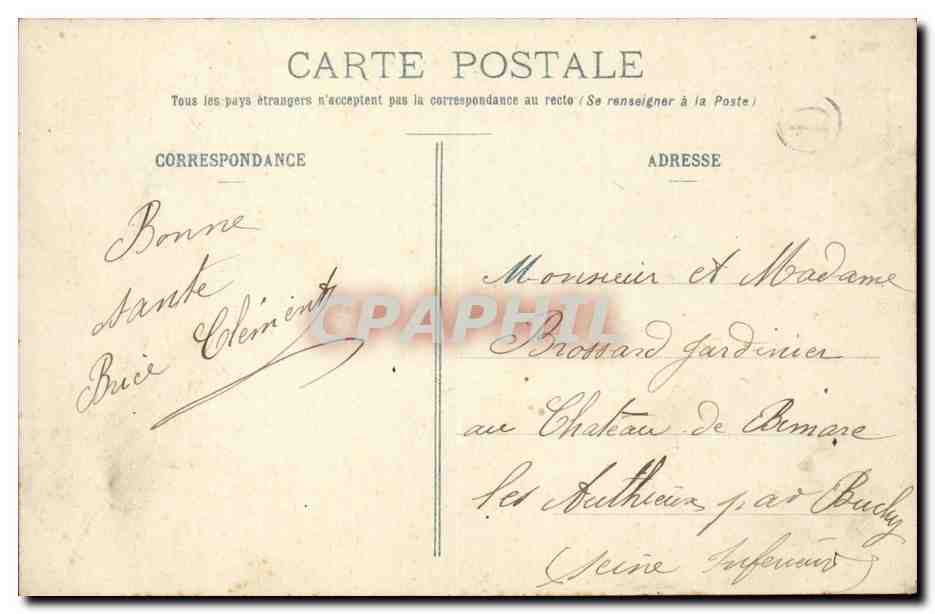 CARTE POSTALE
Tous les pays étrangers n'acceptent pas la correspondance au recto (Se renseigner à la Poste)
CORRESPONDANCE
Bonne
sante
Brice Clément
ADRESSE
Monsieur et Madame
Brossard jardinier
au Chateau de Bimare
les Authieux par Buchy
(Seine Inferieure)
CPAPHIL